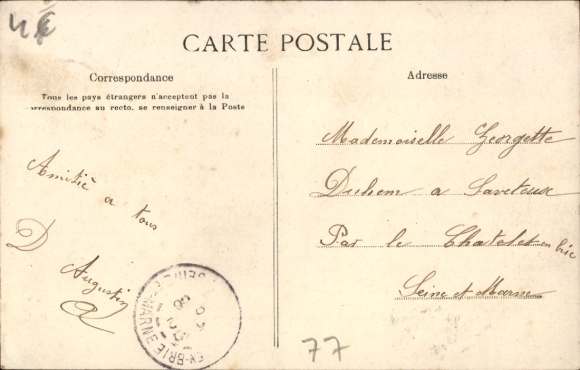 4€
CARTE POSTALE
Correspondance
Tous les pays étrangers n'acceptent pas la
correspondance au recto, se renseigner à la Poste
Amitié a tous
D Augustin
Adresse
Mademoiselle Georgette
Duhem a
Par le Chatelet en brie
Seine et Marne
EN-BRIE
SEINE-ET-MARNE
77